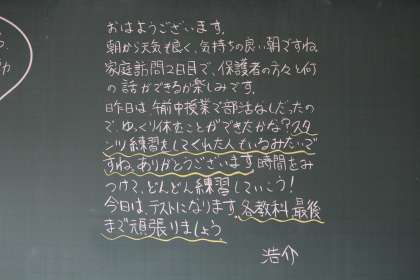 おはようございます。
朝から天気も良く、気持ちの良い朝ですね。
家庭訪問2日目で、保護者の方々と何
の話ができるか楽しみです。
昨日は、午前中授業で部活なしだったの
で、ゆっくり休むことができたかな?スタ
ンツ練習をしてくれた人もいるみたいで
すね。ありがとうございます。時間をみ
つけて、どんどん練習していこう!
今日は、テストになります。各教科、最後
まで頑張りましょう。
浩介